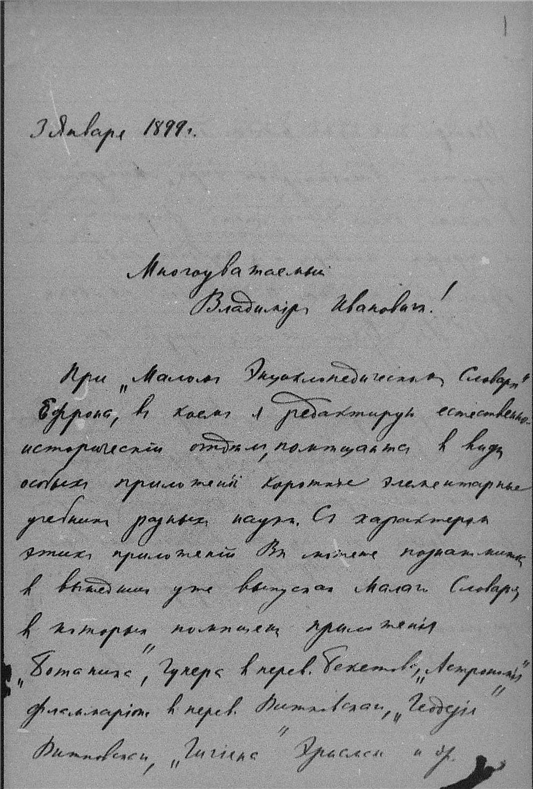 1
3 Января 1899 г.
Многоуважаемый
Владиміръ Ивановичъ!
При „Маломъ Энциклопедическомъ Словарѣ"
Ефрона, въ коемъ я редактирую естественно-
историческій отдѣлъ, помѣщаются въ видѣ
особыхъ приложеній короткіе элементарные
учебники разныхъ наукъ. Съ характеромъ
этихъ приложеній Вы можете познакомиться
въ вышедшихъ уже выпускахъ Малаго Словаря,
въ которыхъ помѣщены приложенія
„Ботаника", Гукера въ перев. Бекетова, „Астрономія"
Фламмаріона въ перев. Витковскаго, „Геодезія"
Витковскаго, „Гигіена" Эрисмана и др.